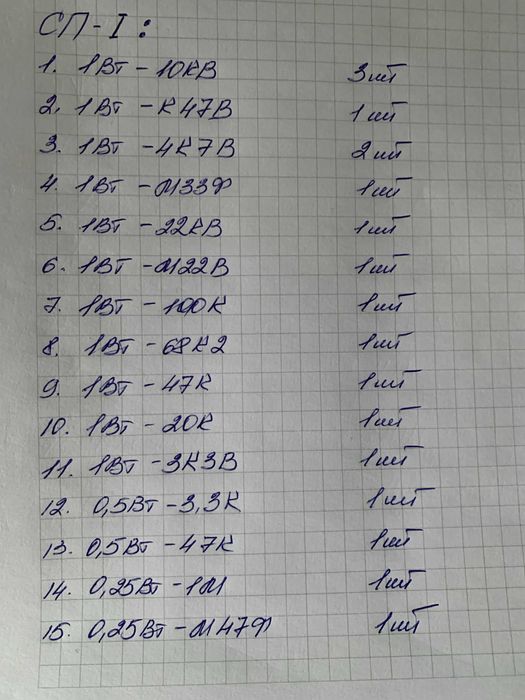 СП-I:
1. 1Вт - 10КВ 3 шт
2. 1Вт - К47В 1 шт
3. 1Вт - 4К7В 2 шт
4. 1Вт - М33Ф 1 шт
5. 1Вт - 22КВ 1 шт
6. 1Вт - М22В 1 шт
7. 1Вт - 100К 1 шт
8. 1Вт - 68К2 1 шт
9. 1Вт - 47К 1 шт
10. 1Вт - 20К 1 шт
11. 1Вт - 3К3В 1 шт
12. 0,5Вт - 3,3К 1 шт
13. 0,5Вт - 47К 1 шт
14. 0,25Вт - 1М 1 шт
15. 0,25Вт - М47Ф 1 шт